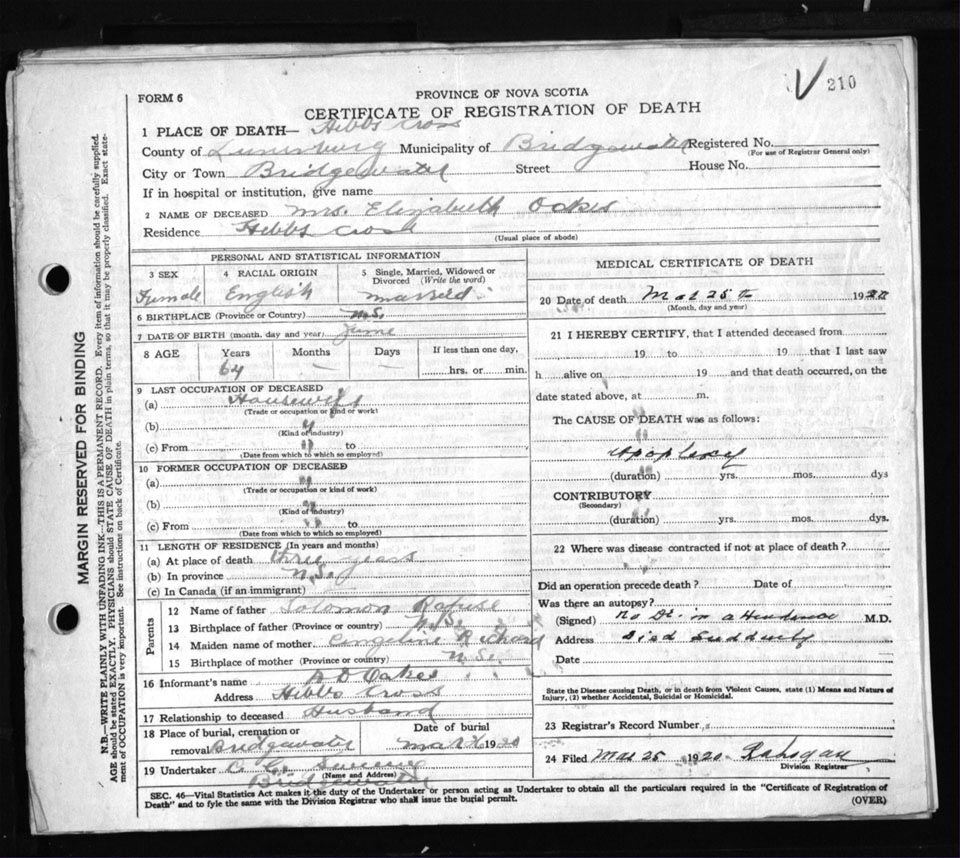 210
FORM 6
PROVINCE OF NOVA SCOTIA
CERTIFICATE OF REGISTRATION OF DEATH
1 PLACE OF DEATH— Hebbs Cross
County of Lunenburg Municipality of Bridgewater Registered No.
(For use of Registrar General only)
City or Town Bridgewater Street House No.
If in hospital or institution, give name
2 NAME OF DECEASED Mrs. Elizabeth Oakes
Residence Hebbs Cross
(Usual place of abode)
PERSONAL AND STATISTICAL INFORMATION
3 SEX Female
4 RACIAL ORIGIN English
5 Single, Married, Widowed or Divorced (Write the word)
6 BIRTHPLACE (Province or Country) N.S.
7 DATE OF BIRTH (month, day and year) June
8 AGE Years 64 Months — Days — If less than one day, hrs. or min.
9 LAST OCCUPATION OF DECEASED
(a) Housewife
(Trade or occupation or kind or work)
(b) "
(Kind of industry)
(c) From " to
(Date from which to which so employed)
10 FORMER OCCUPATION OF DECEASED
(a) "
(Trade or occupation or kind of work)
(b) "
(Kind of industry)
(c) From " to
(Date from which to which so employed)
11 LENGTH OF RESIDENCE (In years and months)
(a) At place of death three years
(b) In province N.S.
(c) In Canada (if an immigrant)
Parents
12 Name of father Solomon Rafuse
13 Birthplace of father (Province or country) N.S.
14 Maiden name of mother
15 Birthplace of mother (Province or country) N.S.
16 Informant's name Oakes
Address Hebbs Cross
17 Relationship to deceased Husband
18 Place of burial, cremation or removal Bridgewater
Date of burial Mar 19
19 Undertaker
(Name and Address)
Bridgewater
MEDICAL CERTIFICATE OF DEATH
20 Date of death Mar 25th 19
(Month, day and year)
21 I HEREBY CERTIFY, that I attended deceased from
19 to 19 that I last saw
h alive on 19 and that death occurred, on the
date stated above, at m.
The CAUSE OF DEATH was as follows:
Apoplexy
(duration) yrs. mos. dys
CONTRIBUTORY
(Secondary)
(duration) yrs. mos. dys.
22 Where was disease contracted if not at place of death?
Did an operation precede death? Date of
Was there an autopsy?
(Signed) No Dr. in attendance M.D.
Address Died Suddenly
Date
State the Disease causing Death, or in death from Violent Causes, state (1) Means and Nature of
Injury, (2) whether Accidental, Suicidal or Homicidal.
23 Registrar's Record Number
24 Filed Mar 25 19
Division Registrar
SEC. 46—Vital Statistics Act makes it the duty of the Undertaker or person acting as Undertaker to obtain all the particulars required in the "Certificate of Registration of
Death" and to fyle the same with the Division Registrar who shall issue the burial permit.
(OVER)
MARGIN RESERVED FOR BINDING
N.B.—WRITE PLAINLY WITH UNFADING INK—THIS IS A PERMANENT RECORD. Every item of information should be carefully supplied.
AGE should be stated EXACTLY. PHYSICIANS should STATE CAUSE OF DEATH in plain terms, so that it may be properly classified. Exact state-
ment of OCCUPATION is very important. See instructions on back of Certificate.